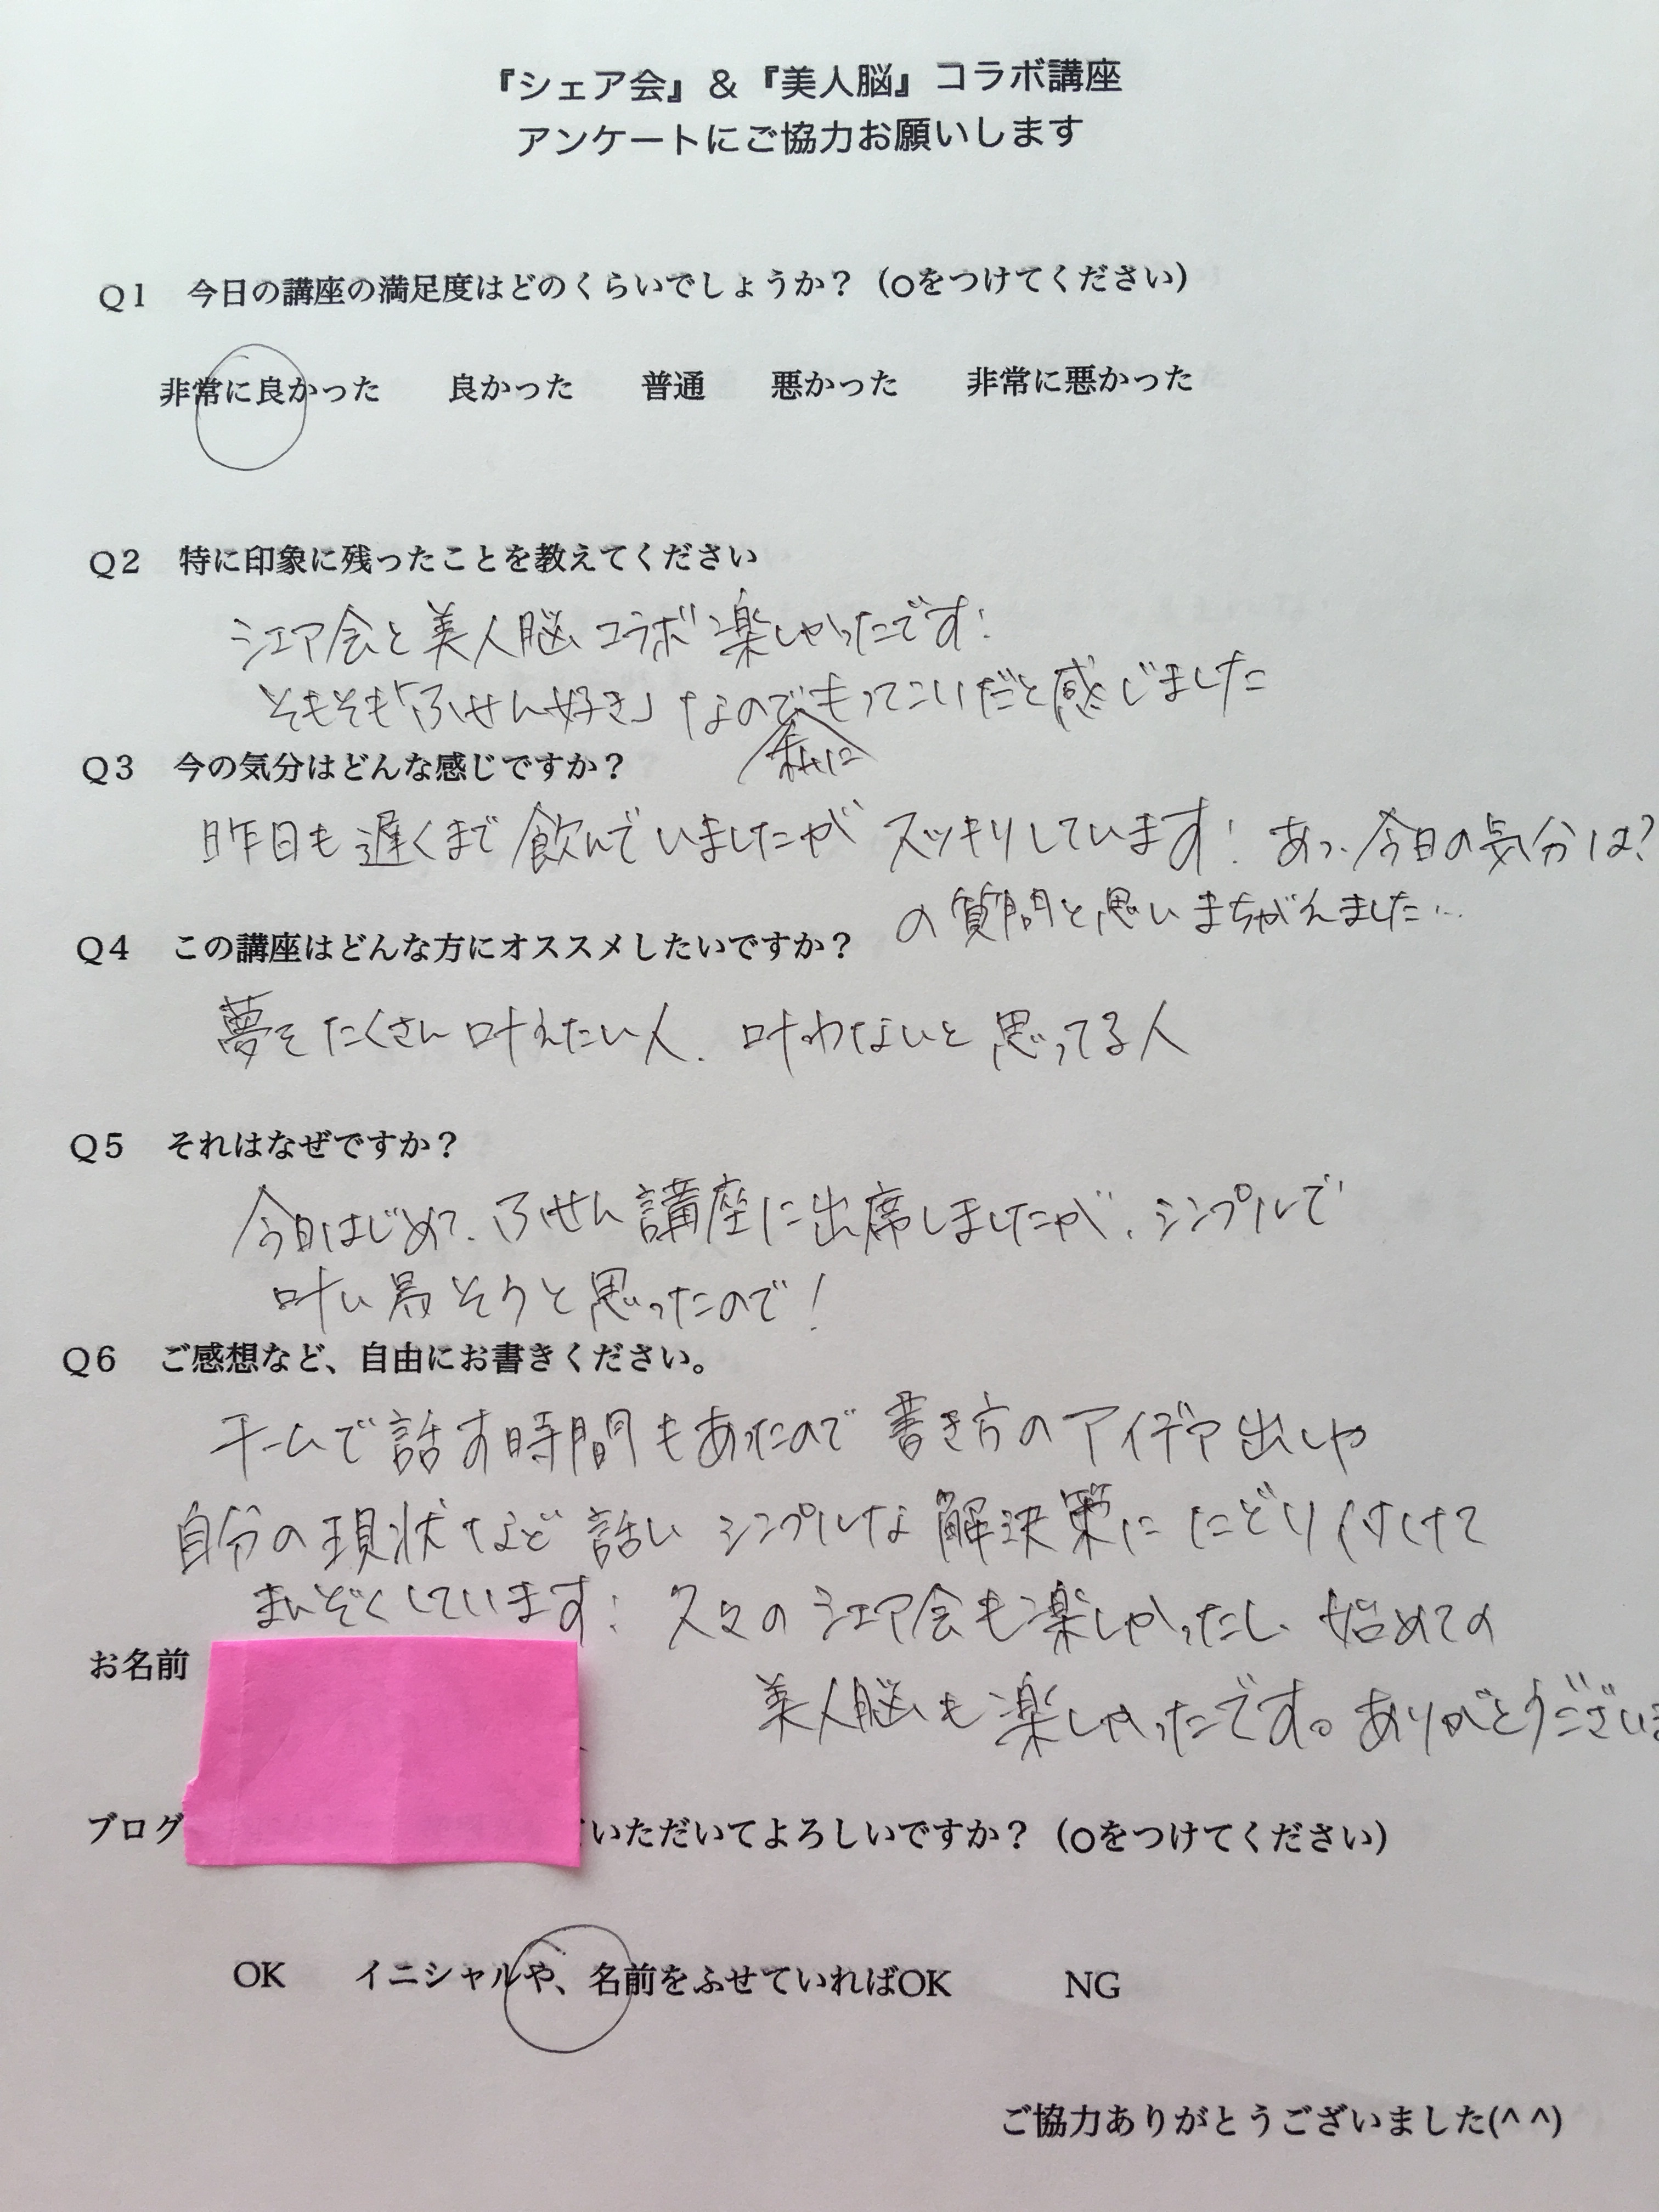 『シェア会』&『美人脳』コラボ講座
アンケートにご協力お願いします
Q1 今日の講座の満足度はどのくらいでしょうか？（○をつけてください）
非常に良かった 良かった 普通 悪かった 非常に悪かった
Q2 特に印象に残ったことを教えてください
シェア会と美人脳コラボ楽しかったです!
そもそも「ふせん好き」なのでもってこいだと感じました
私に
Q3 今の気分はどんな感じですか？
昨日も遅くまで飲んでいましたが スッキリしています! あっ、今日の気分は?
の質問と思いまちがえました…
Q4 この講座はどんな方にオススメしたいですか？
夢をたくさん叶えたい人、叶わないと思ってる人
Q5 それはなぜですか？
今日はじめて、ふせん講座に出席しましたが、シンプルで
叶い易そうと思ったので!
Q6 ご感想など、自由にお書きください。
チームで話す時間もあったので書き方のアイデア出しや
自分の現状など話し シンプルな解決策にたどり付けて
まんぞくしています! 久々のシェア会も楽しかったし、始めての
お名前
美人脳も楽しかったです。ありがとうございま
ブログ いただいてよろしいですか？（○をつけてください）
OK イニシャルや、名前をふせていればOK NG
ご協力ありがとうございました(^ ^)